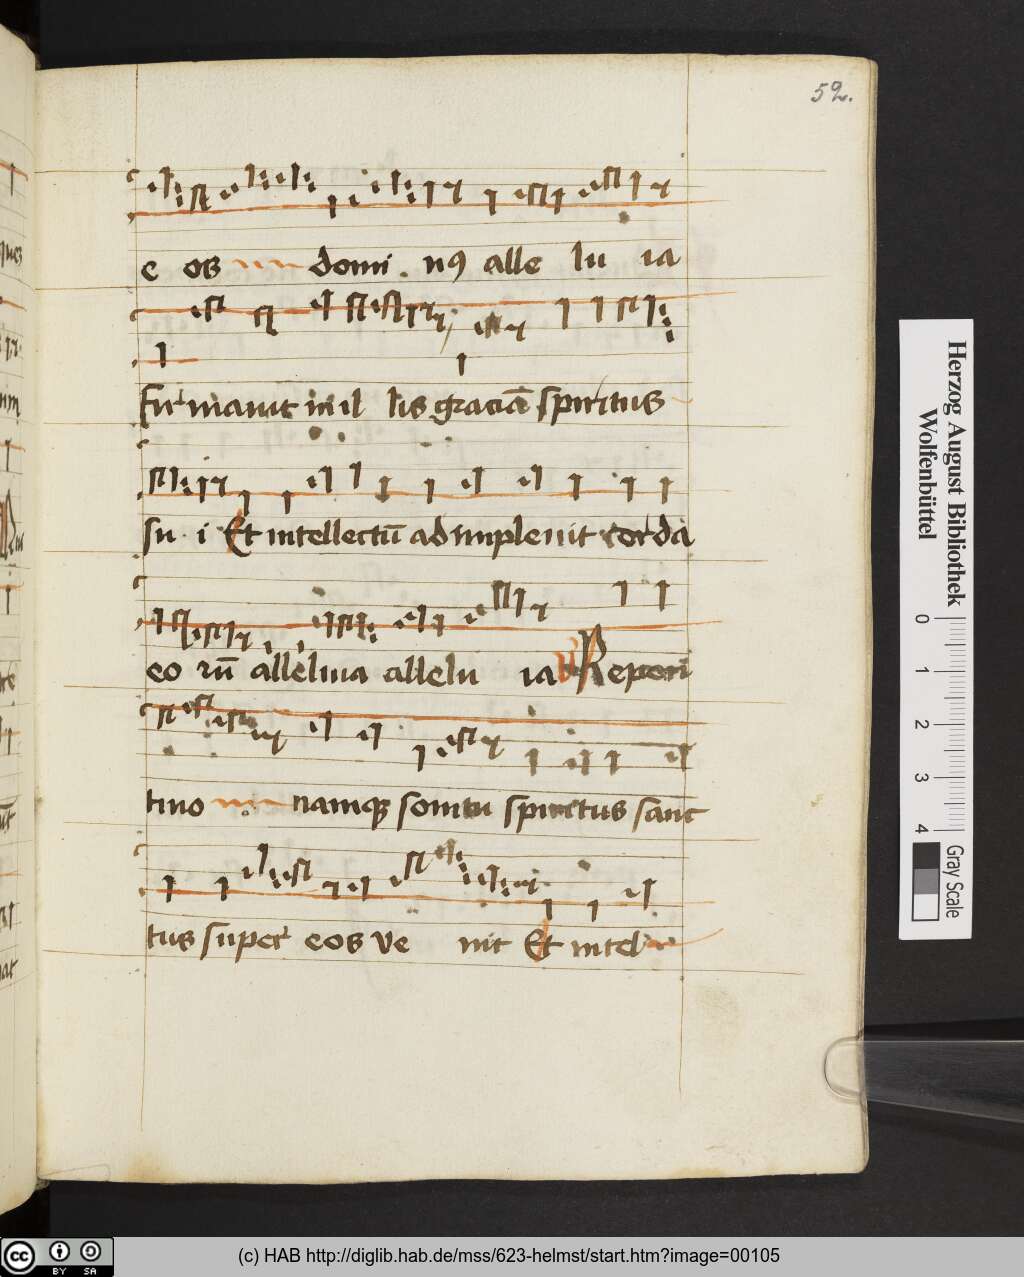 52.
e os domi nꝰ alle lu ia
Firmauit in il lis graciā spiritus
su i Et intellectū adimpleuit corda
eo rū alleluia allelu ia V Repen
tino namqꝫ sonitu spiritus sanc
tus super eos ve nit Et intel
Herzog August Bibliothek
Wolfenbüttel
0 1 2 3 4
Gray Scale
cc BY SA
(c) HAB http://diglib.hab.de/mss/623-helmst/start.htm?image=00105